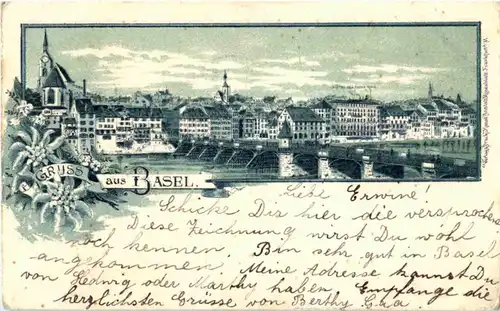 GRUSS
aus BASEL.
Liebe Erwine!
Schicke Dir hier die versproche
Diese Zeichnung wirst Du wohl
noch kennen. Bin sehr gut in Basel
angekommen. Meine Adresse kannst Du
von Hedwig oder Marthy haben. Empfange die
herzlichsten Grüsse von Berthy